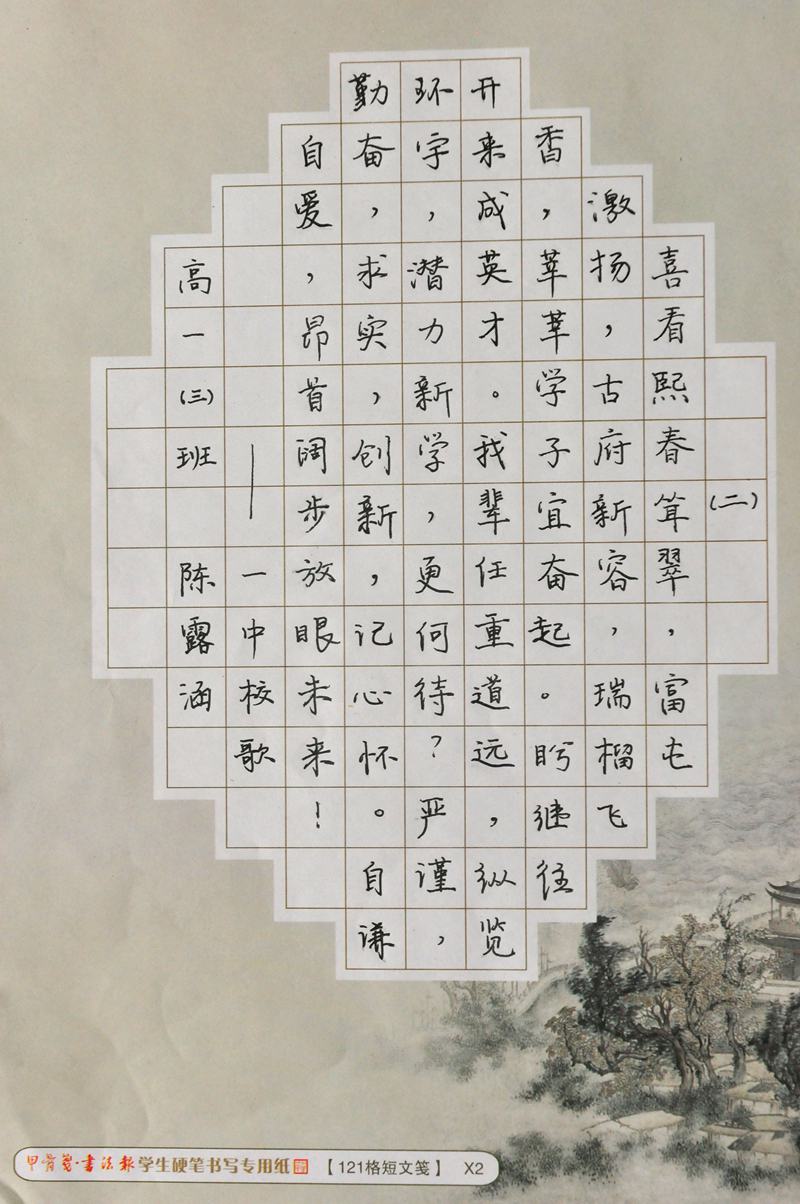 （二）
喜看熙春耸翠，富屯
激扬，古府新容，瑞榴飞
香，莘莘学子宜奋起。盼继往
开来成英才。我辈任重道远，纵览
环宇，潜力新学，更何待？严谨，
勤奋，求实，创新，记心怀。自谦
自爱，昂首阔步放眼未来！
——一中校歌
高一（三）班 陈露涵
甲骨笺·书法报学生硬笔书写专用纸 【121格短文笺】 X2